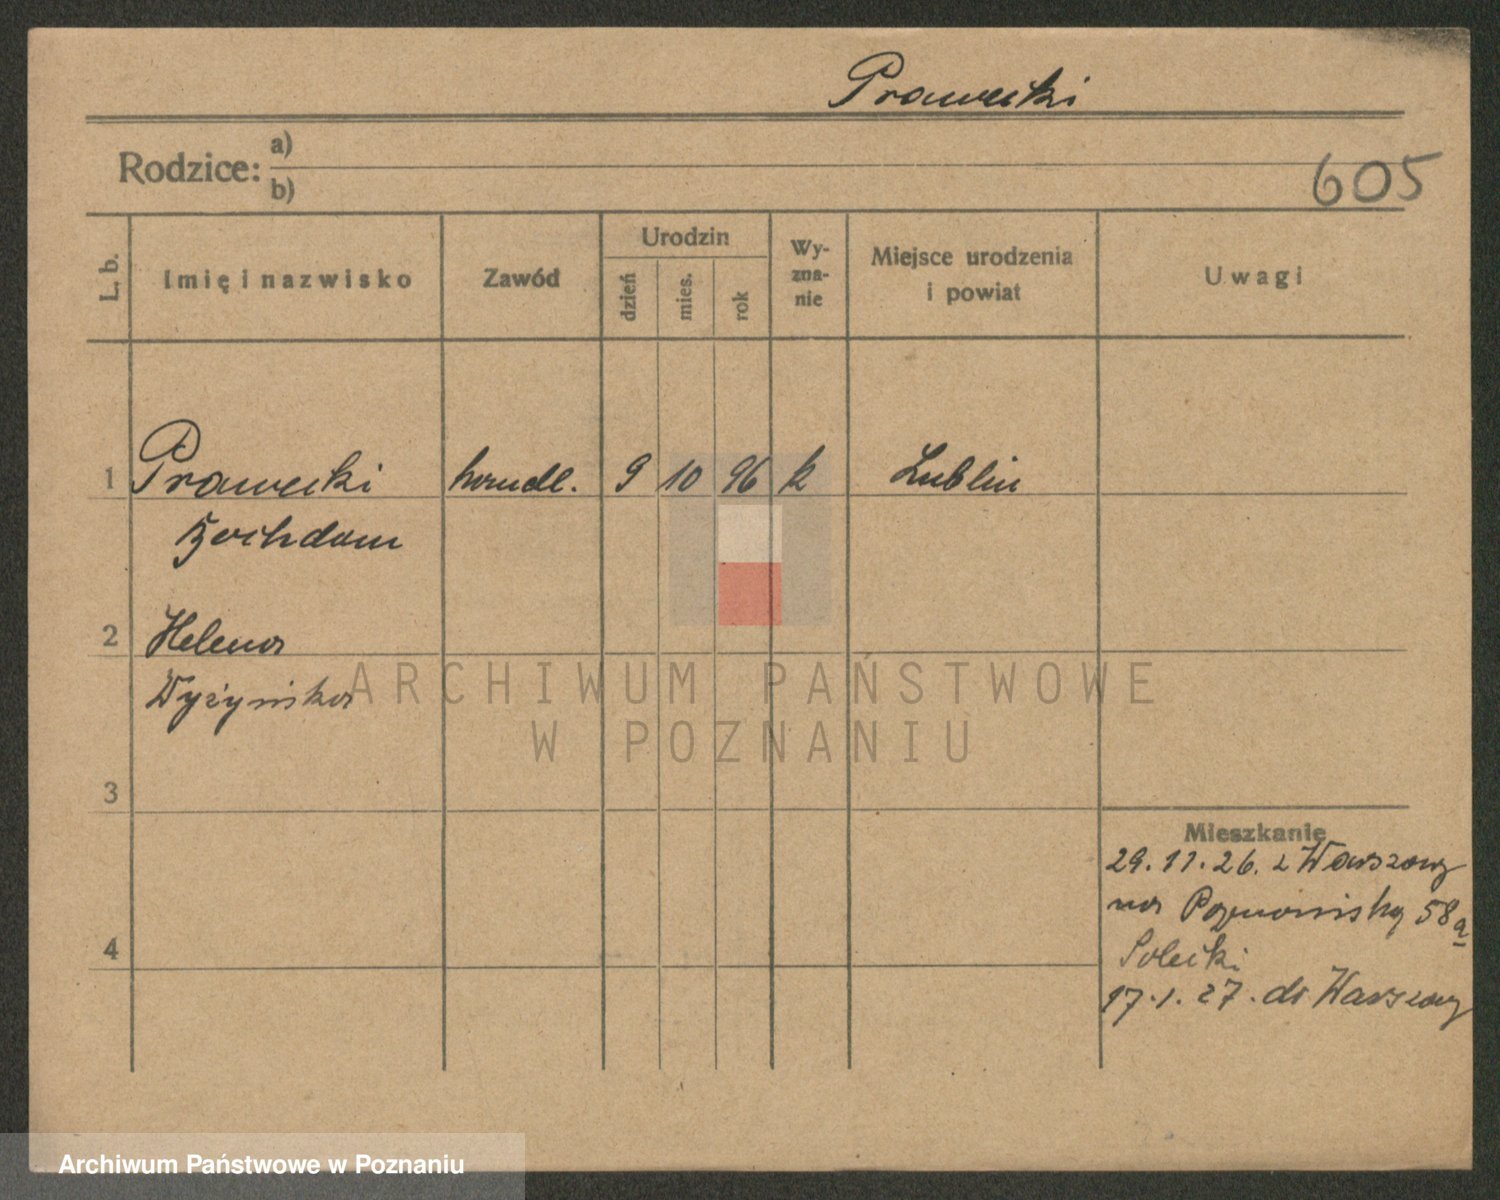 Prawecki
Rodzice: a)
b)
605
L. b. Imię i nazwisko Zawód Urodzin dzień mies. rok Wy-zna-nie Miejsce urodzenia i powiat Uwagi
1 Prawecki handl. 9 10 96 k Lublin
Bohdan
2 Helena
Wyżyńska
3
4
Mieszkanie
29.11.26. z Warszawy
na Poznańską 58a
Solecki
17.1.27. do Warszawy
ARCHIWUM PAŃSTWOWE
W POZNANIU
Archiwum Państwowe w Poznaniu